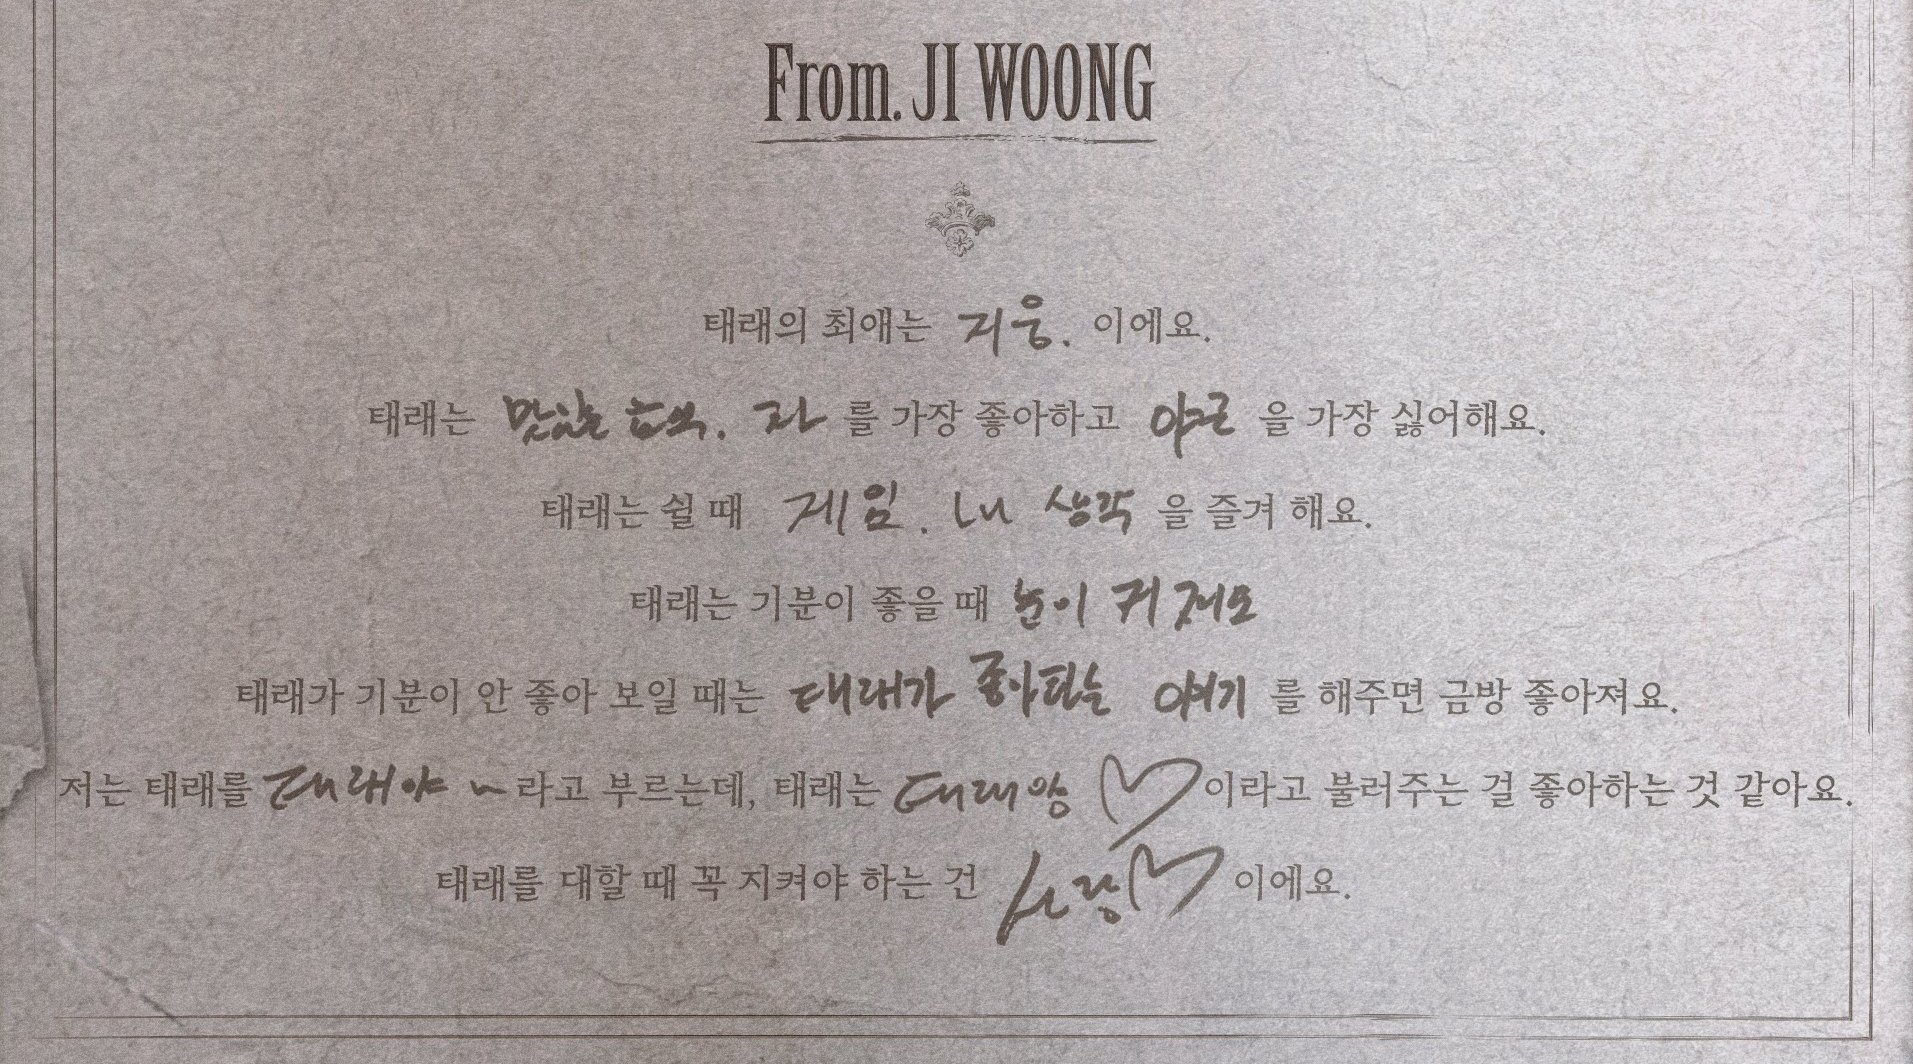 From. JI WOONG
태래의 최애는 지웅. 이에요.
태래는 맛있는 음식. 자 를 가장 좋아하고 야근 을 가장 싫어해요.
태래는 쉴 때 게임. 내 생각 을 즐겨 해요.
태래는 기분이 좋을 때 눈이 커져요
태래가 기분이 안 좋아 보일 때는 태래가 좋아하는 얘기 를 해주면 금방 좋아져요.
저는 태래를 태래야 ~ 라고 부르는데, 태래는 태래양 ♡ 이라고 불러주는 걸 좋아하는 것 같아요.
태래를 대할 때 꼭 지켜야 하는 건 사랑♡ 이에요.